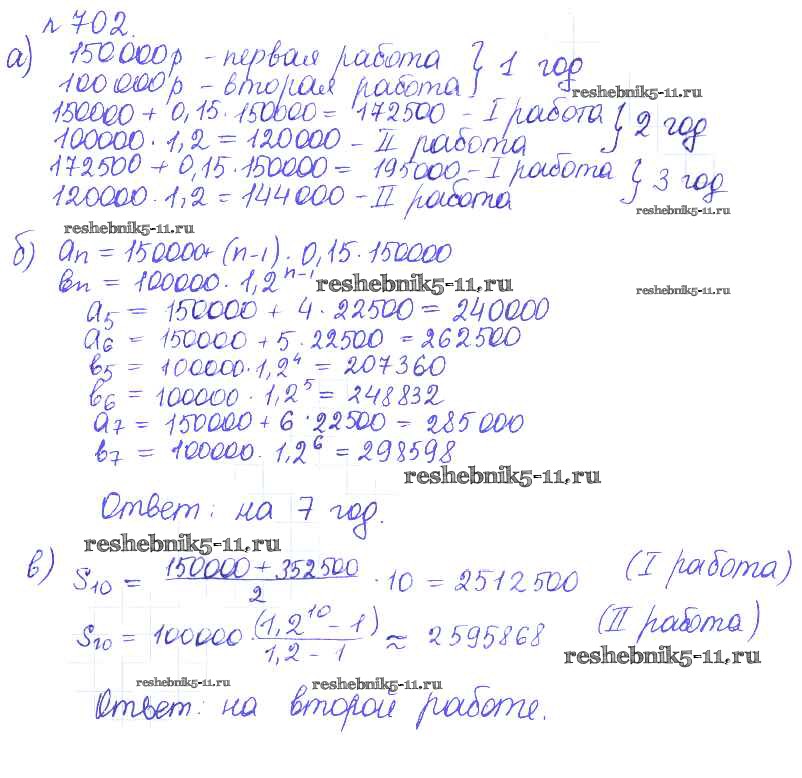 № 702.
а) 150000р – первая работа } 1 год
100000р – вторая работа
reshebnik5-11.ru
150000 + 0,15·150000 = 172500 – I работа } 2 год
100000·1,2 = 120000 – II работа
172500 + 0,15·150000 = 195000 – I работа } 3 год
120000·1,2 = 144000 – II работа
reshebnik5-11.ru
reshebnik5-11.ru
б) an = 150000 + (n-1)·0,15·150000
вn = 100000·1,2^n-1
reshebnik5-11.ru
reshebnik5-11.ru
a5 = 150000 + 4·22500 = 240000
a6 = 150000 + 5·22500 = 262500
в5 = 100000·1,2^4 = 207360
в6 = 100000·1,2^5 = 248832
a7 = 150000 + 6·22500 = 285000
в7 = 100000·1,2^6 = 298598
reshebnik5-11.ru
Ответ: на 7 год.
reshebnik5-11.ru
в) S10 = (150000 + 352500)/2 · 10 = 2512500 (I работа)
S10 = 100000·(1,2^10 - 1)/(1,2 - 1) ≈ 2595868 (II работа)
reshebnik5-11.ru
reshebnik5-11.ru
reshebnik5-11.ru
Ответ: на второй работе.